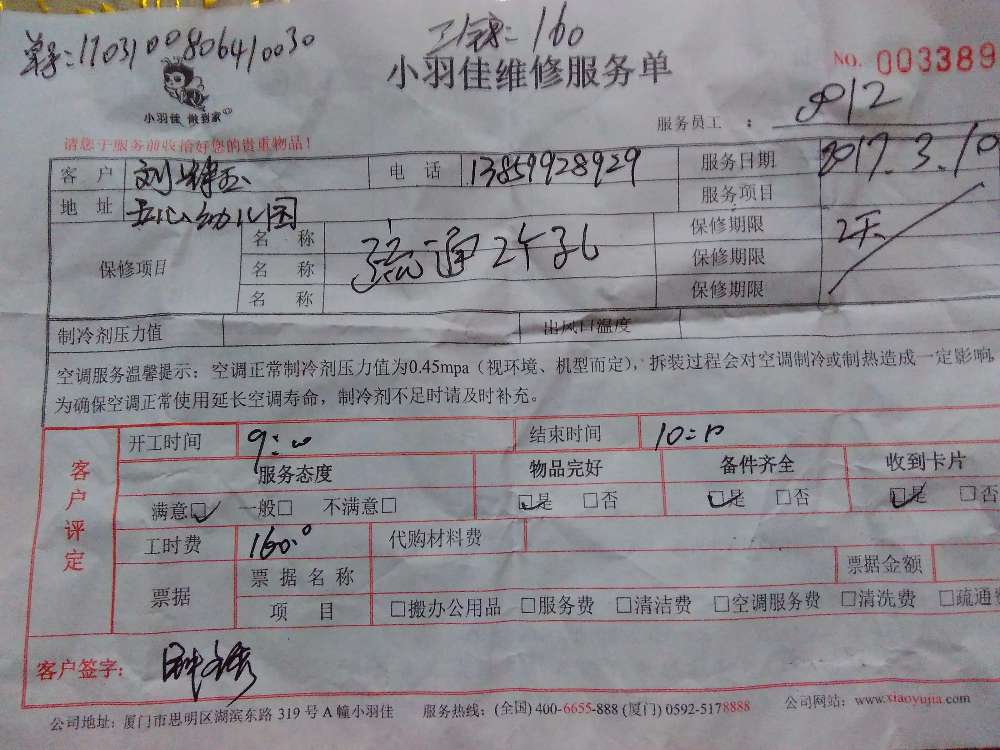 单号:1703100806410030
工钱:160
小羽佳维修服务单
NO. 003389
小羽佳 做到家
服务员工 : 8012
请您于服务前收拾好您的贵重物品!
客 户 刘 电 话 13859928929 服务日期 2017.3.10
地 址 幼儿园 服务项目
保修项目 名 称 疏通2个孔 保修期限 2天
名 称 保修期限
名 称 保修期限
制冷剂压力值 出风口温度
空调服务温馨提示:空调正常制冷剂压力值为0.45mpa(视环境、机型而定),拆装过程会对空调制冷或制热造成一定影响,
为确保空调正常使用延长空调寿命,制冷剂不足时请及时补充。
客户评定
开工时间 9:00 结束时间 10:10
服务态度 物品完好 备件齐全 收到卡片
满意☑ 一般□ 不满意□ ☑是 □否 ☑是 □否 ☑是 □否
工时费 160.0 代购材料费
票据 票据名称 票据金额
项 目 □搬办公用品 □服务费 □清洁费 □空调服务费 □清洗费 □疏通费
客户签字:
公司地址:厦门市思明区湖滨东路 319 号 A 幢小羽佳 服务热线:(全国) 400-6655-888 (厦门) 0592-5178888 公司网站:www.xiaoyujia.com